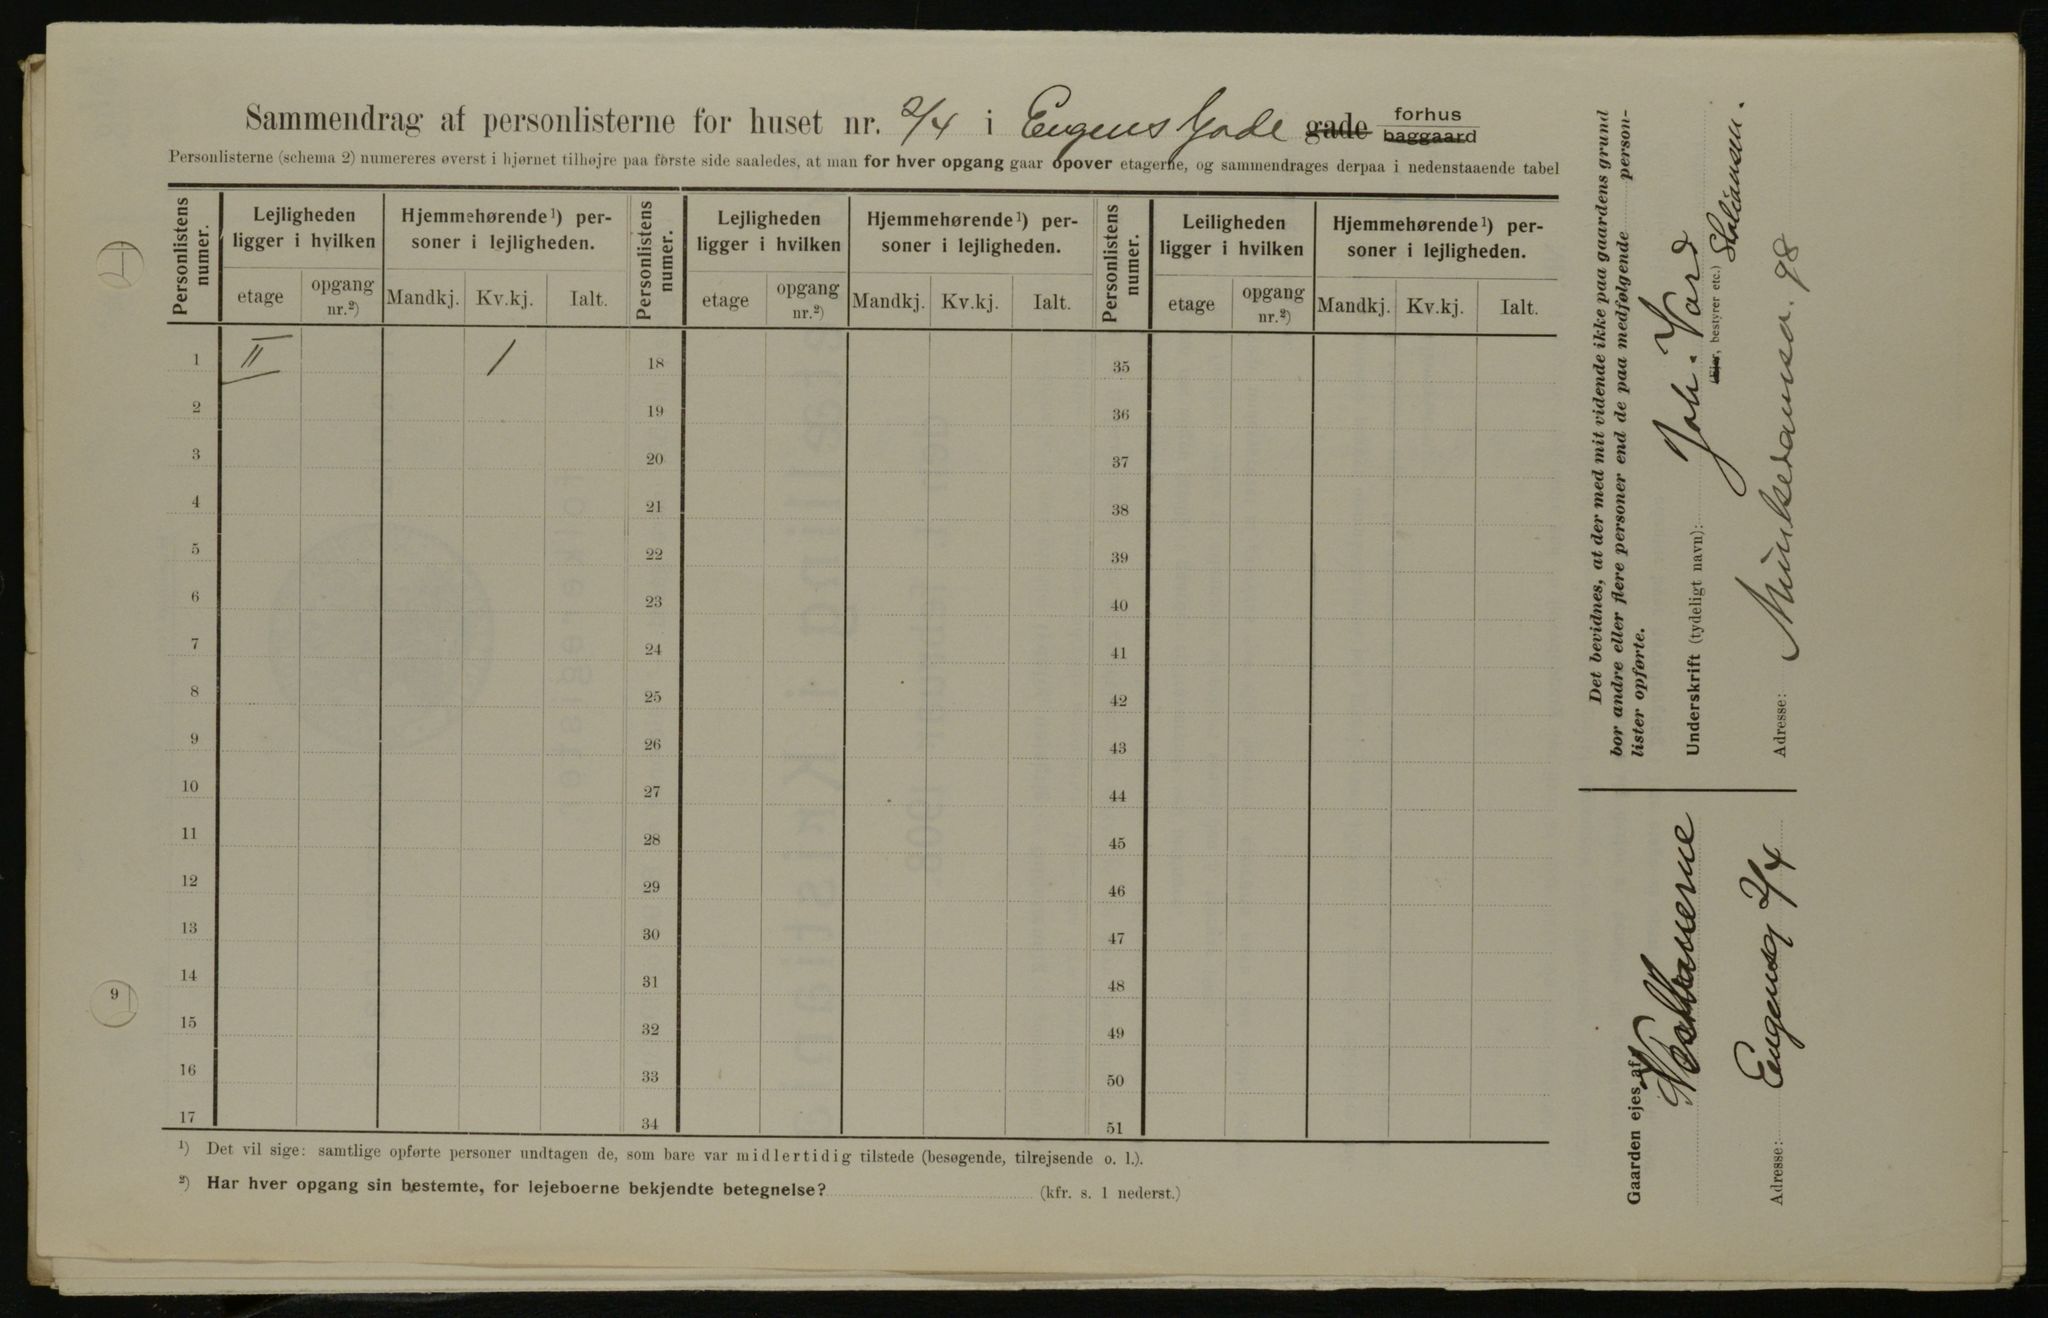 Sammendrag af personlisterne for huset nr. 2/4 i Eugens Gade gade forhus baggaard
Personlisterne (schema 2) numereres øverst i hjørnet tilhøjre paa første side saaledes, at man for hver opgang gaar opover etagerne, og sammendrages derpaa i nedenstaaende tabel
Personlistens numer. Lejligheden ligger i hvilken Hjemmehørende¹) personer i lejligheden. Personlistens numer. Lejligheden ligger i hvilken Hjemmehørende¹) personer i lejligheden. Personlistens numer. Leiligheden ligger i hvilken Hjemmehørende¹) personer i lejligheden.
etage opgang nr.²) Mandkj. Kv.kj. Ialt. etage opgang nr.²) Mandkj. Kv.kj. Ialt. etage opgang nr.²) Mandkj. Kv.kj. Ialt.
1 II 1 18 35
2 19 36
3 20 37
4 21 38
5 22 39
6 23 40
7 24 41
8 25 42
9 26 43
10 27 44
11 28 45
12 29 46
13 30 47
14 31 48
15 32 49
16 33 50
17 34 51
¹) Det vil sige: samtlige opførte personer undtagen de, som bare var midlertidig tilstede (besøgende, tilrejsende o. l.).
²) Har hver opgang sin bestemte, for lejeboerne bekjendte betegnelse? (kfr. s. 1 nederst.)
9
Det bevidnes, at der med mit vidende ikke paa gaardens grund
bor andre eller flere personer end de paa medfølgende person-
lister opførte.
Underskrift (tydeligt navn): Joh. Vard
(Ejer, bestyrer etc.)
Adresse: 98
Gaarden ejes af
Adresse: Eugensg 2/4